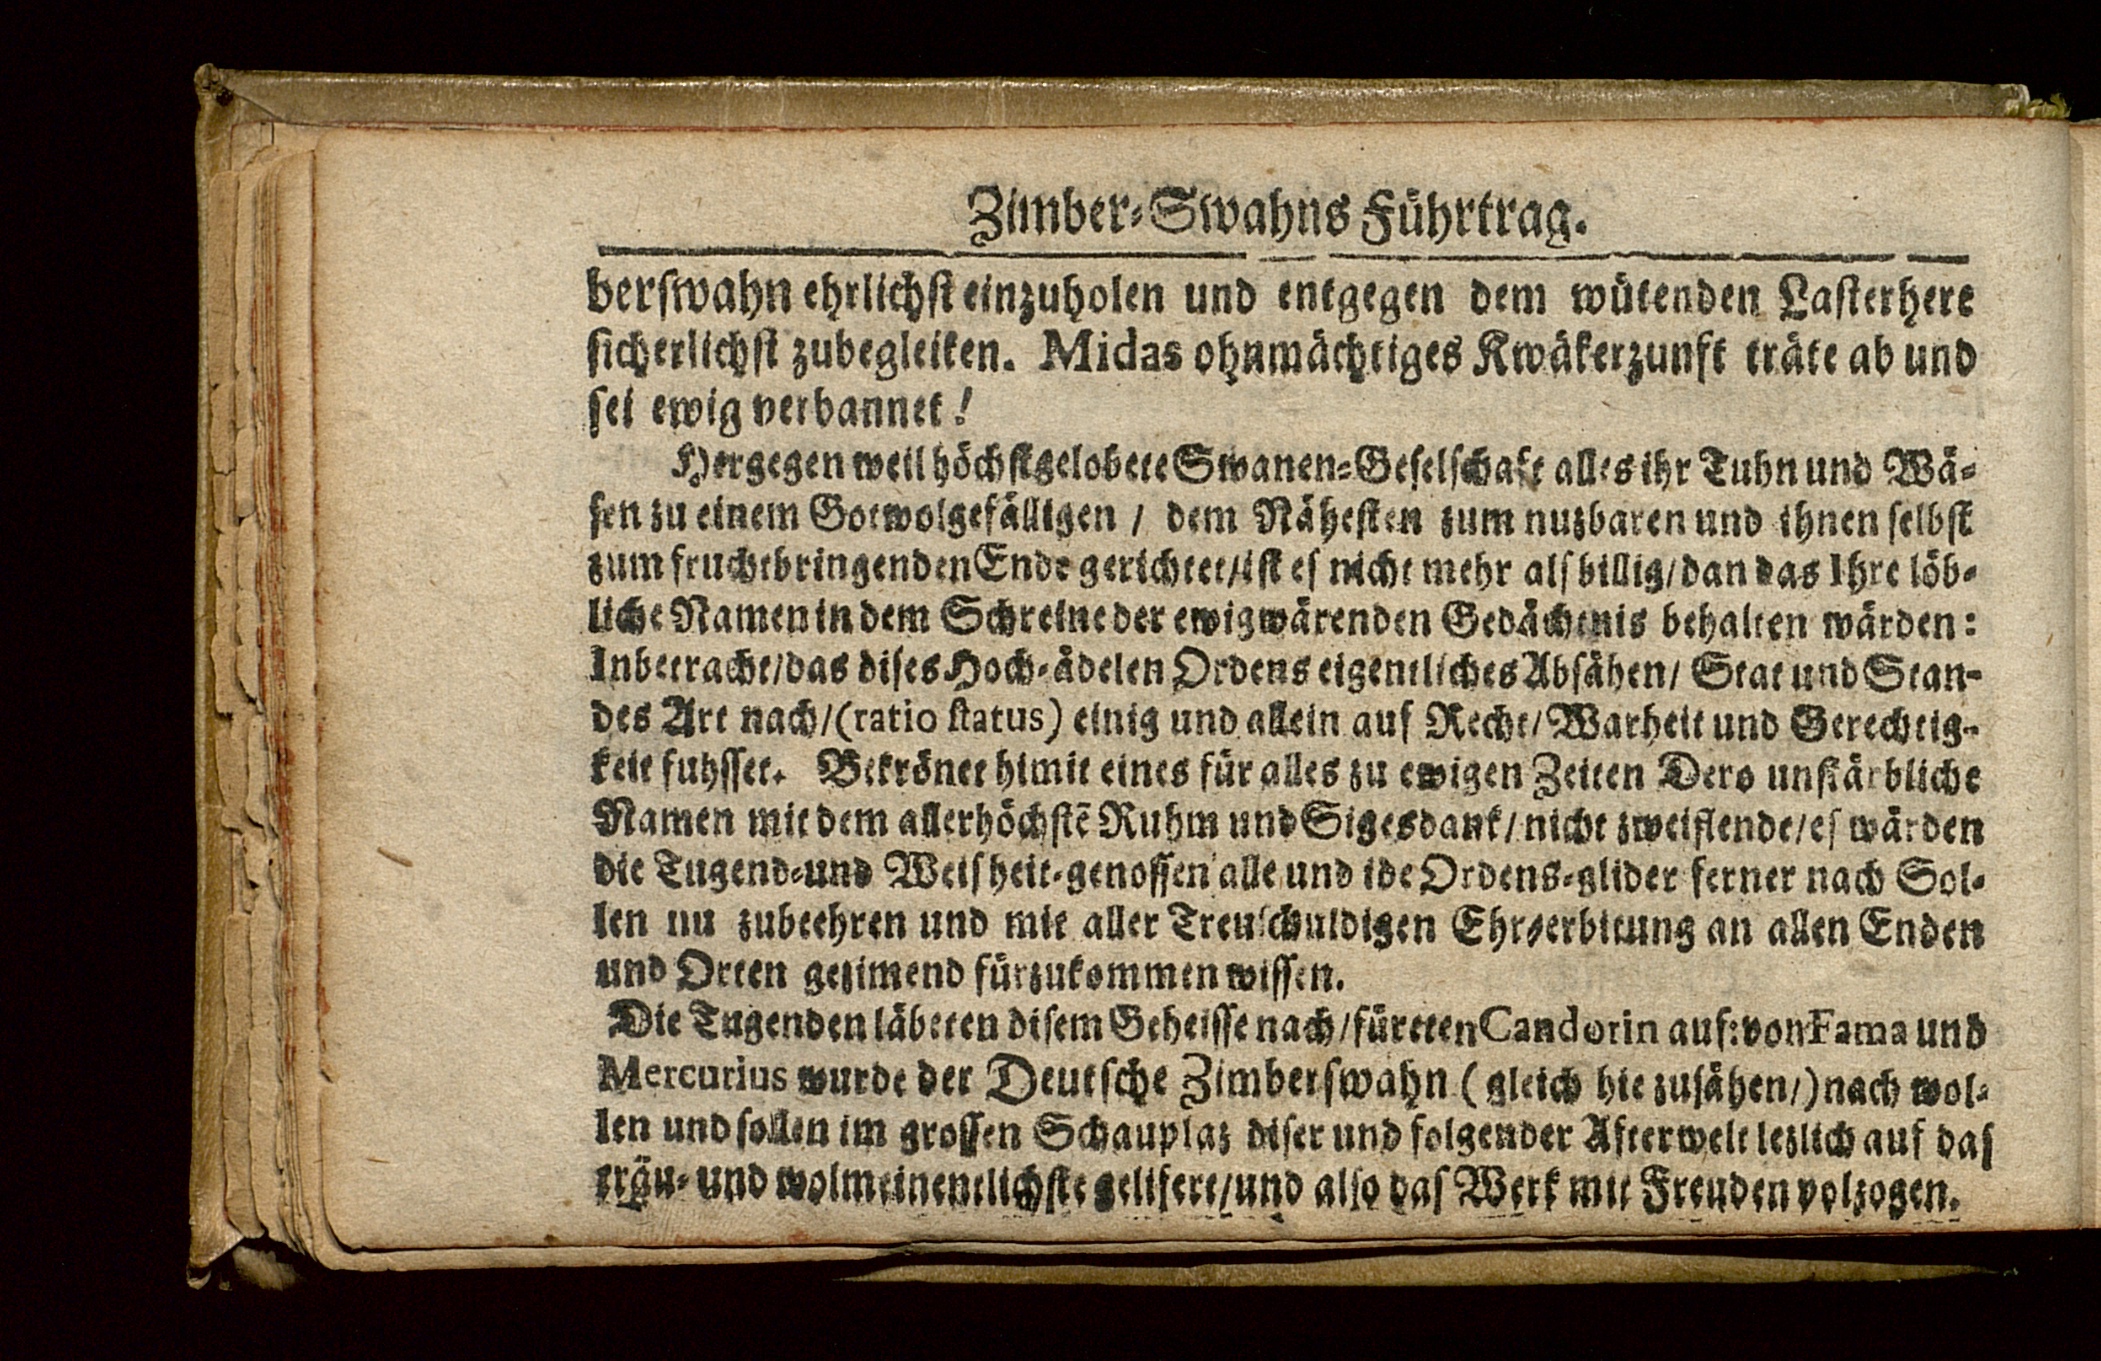 Zimber-Swahns Führtrag.
berswahn ehrlichst einzuholen und entgegen dem wütenden Lasterhere
sicherlichst zubegleiten. Midas ohnmächtiges Kwäkerzunft träte ab und
sei ewig verbannet!
Hergegen weil höchstgelobete Swanen-Geselschaft alles ihr Tuhn und Wä-
sen zu einem Gotwolgefälligen / dem Nähesten zum nuzbaren und ihnen selbst
zum fruchtbringenden Ende gerichtet/ist es nicht mehr als billig/dan das Ihre löb-
liche Namen in dem Schreine der ewigwärenden Gedächtnis behalten wärden:
Inbetracht/das dises Hoch-ädelen Ordens eigentliches Absähen/ Stat und Stan-
des Art nach/(ratio status) einig und allein auf Recht/Warheit und Gerechtig-
keit fuhsset. Bekrönet himit eines für alles zu ewigen Zeiten Dero unstärbliche
Namen mit dem allerhöchstē Ruhm und Sigesdank/nicht zweiflende/es wärden
die Tugend-und Weisheit-genossen alle und ide Ordens-glider ferner nach Sol-
len nu zubeehren und mit aller Treuschuldigen Ehrerbitung an allen Enden
und Orten gezimend fürzukommen wissen.
Die Tugenden läbeten disem Geheisse nach/füreten Candorin auf: von Fama und
Mercurius wurde der Deutsche Zimberswahn (gleich hie zusähen/) nach wol-
len und sollen im grossen Schauplaz diser und folgender Afterwelt lezlich auf das
träu- und wolmeinentlichste gelifert/und also das Werk mit Freuden volzogen.